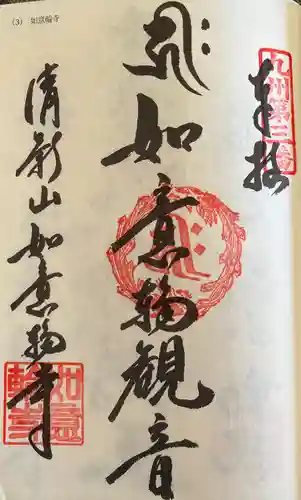 (3) 如意輪寺
九州第三番
奉拝
如意輪観音
清影山如意輪寺
如意輪寺